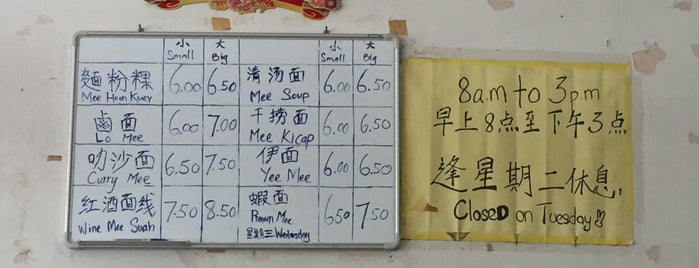 小 大 小 大
Small Big Small Big
麵粉粿 6.00 6.50 清汤面 6.00 6.50
Mee Hoon Kuey Mee Soup
鹵面 6.00 7.00 干捞面 6.00 6.50
Lo Mee Mee Kicap
叻沙面 6.50 7.50 伊面 6.00 6.50
Curry Mee Yee Mee
红酒面线 7.50 8.50 蝦面 6.50 7.50
Wine Mee Suah Prawn Mee
星期三 Wednesday
8 a.m to 3 p.m
早上8点至下午3点
逢星期二休息,
Closed on Tuesday